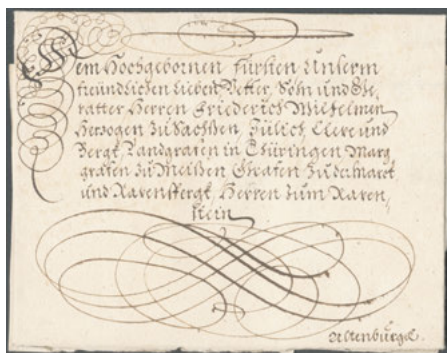 Dem Hochgebornen Fürsten Unserm
freundlichen Lieben Vetter, Sohn und Ge,
vatter Herren Friederich Wilhelmen
Hertzogen Zu Sachßen, Jülich, Cleve und
Bergk, Landgrafen in Thüringen, Marg
grafen Zu Meißen, Grafen Zu der Marck
und Ravenspergk, Herren Zum Raven,
stein
Altenburgk.